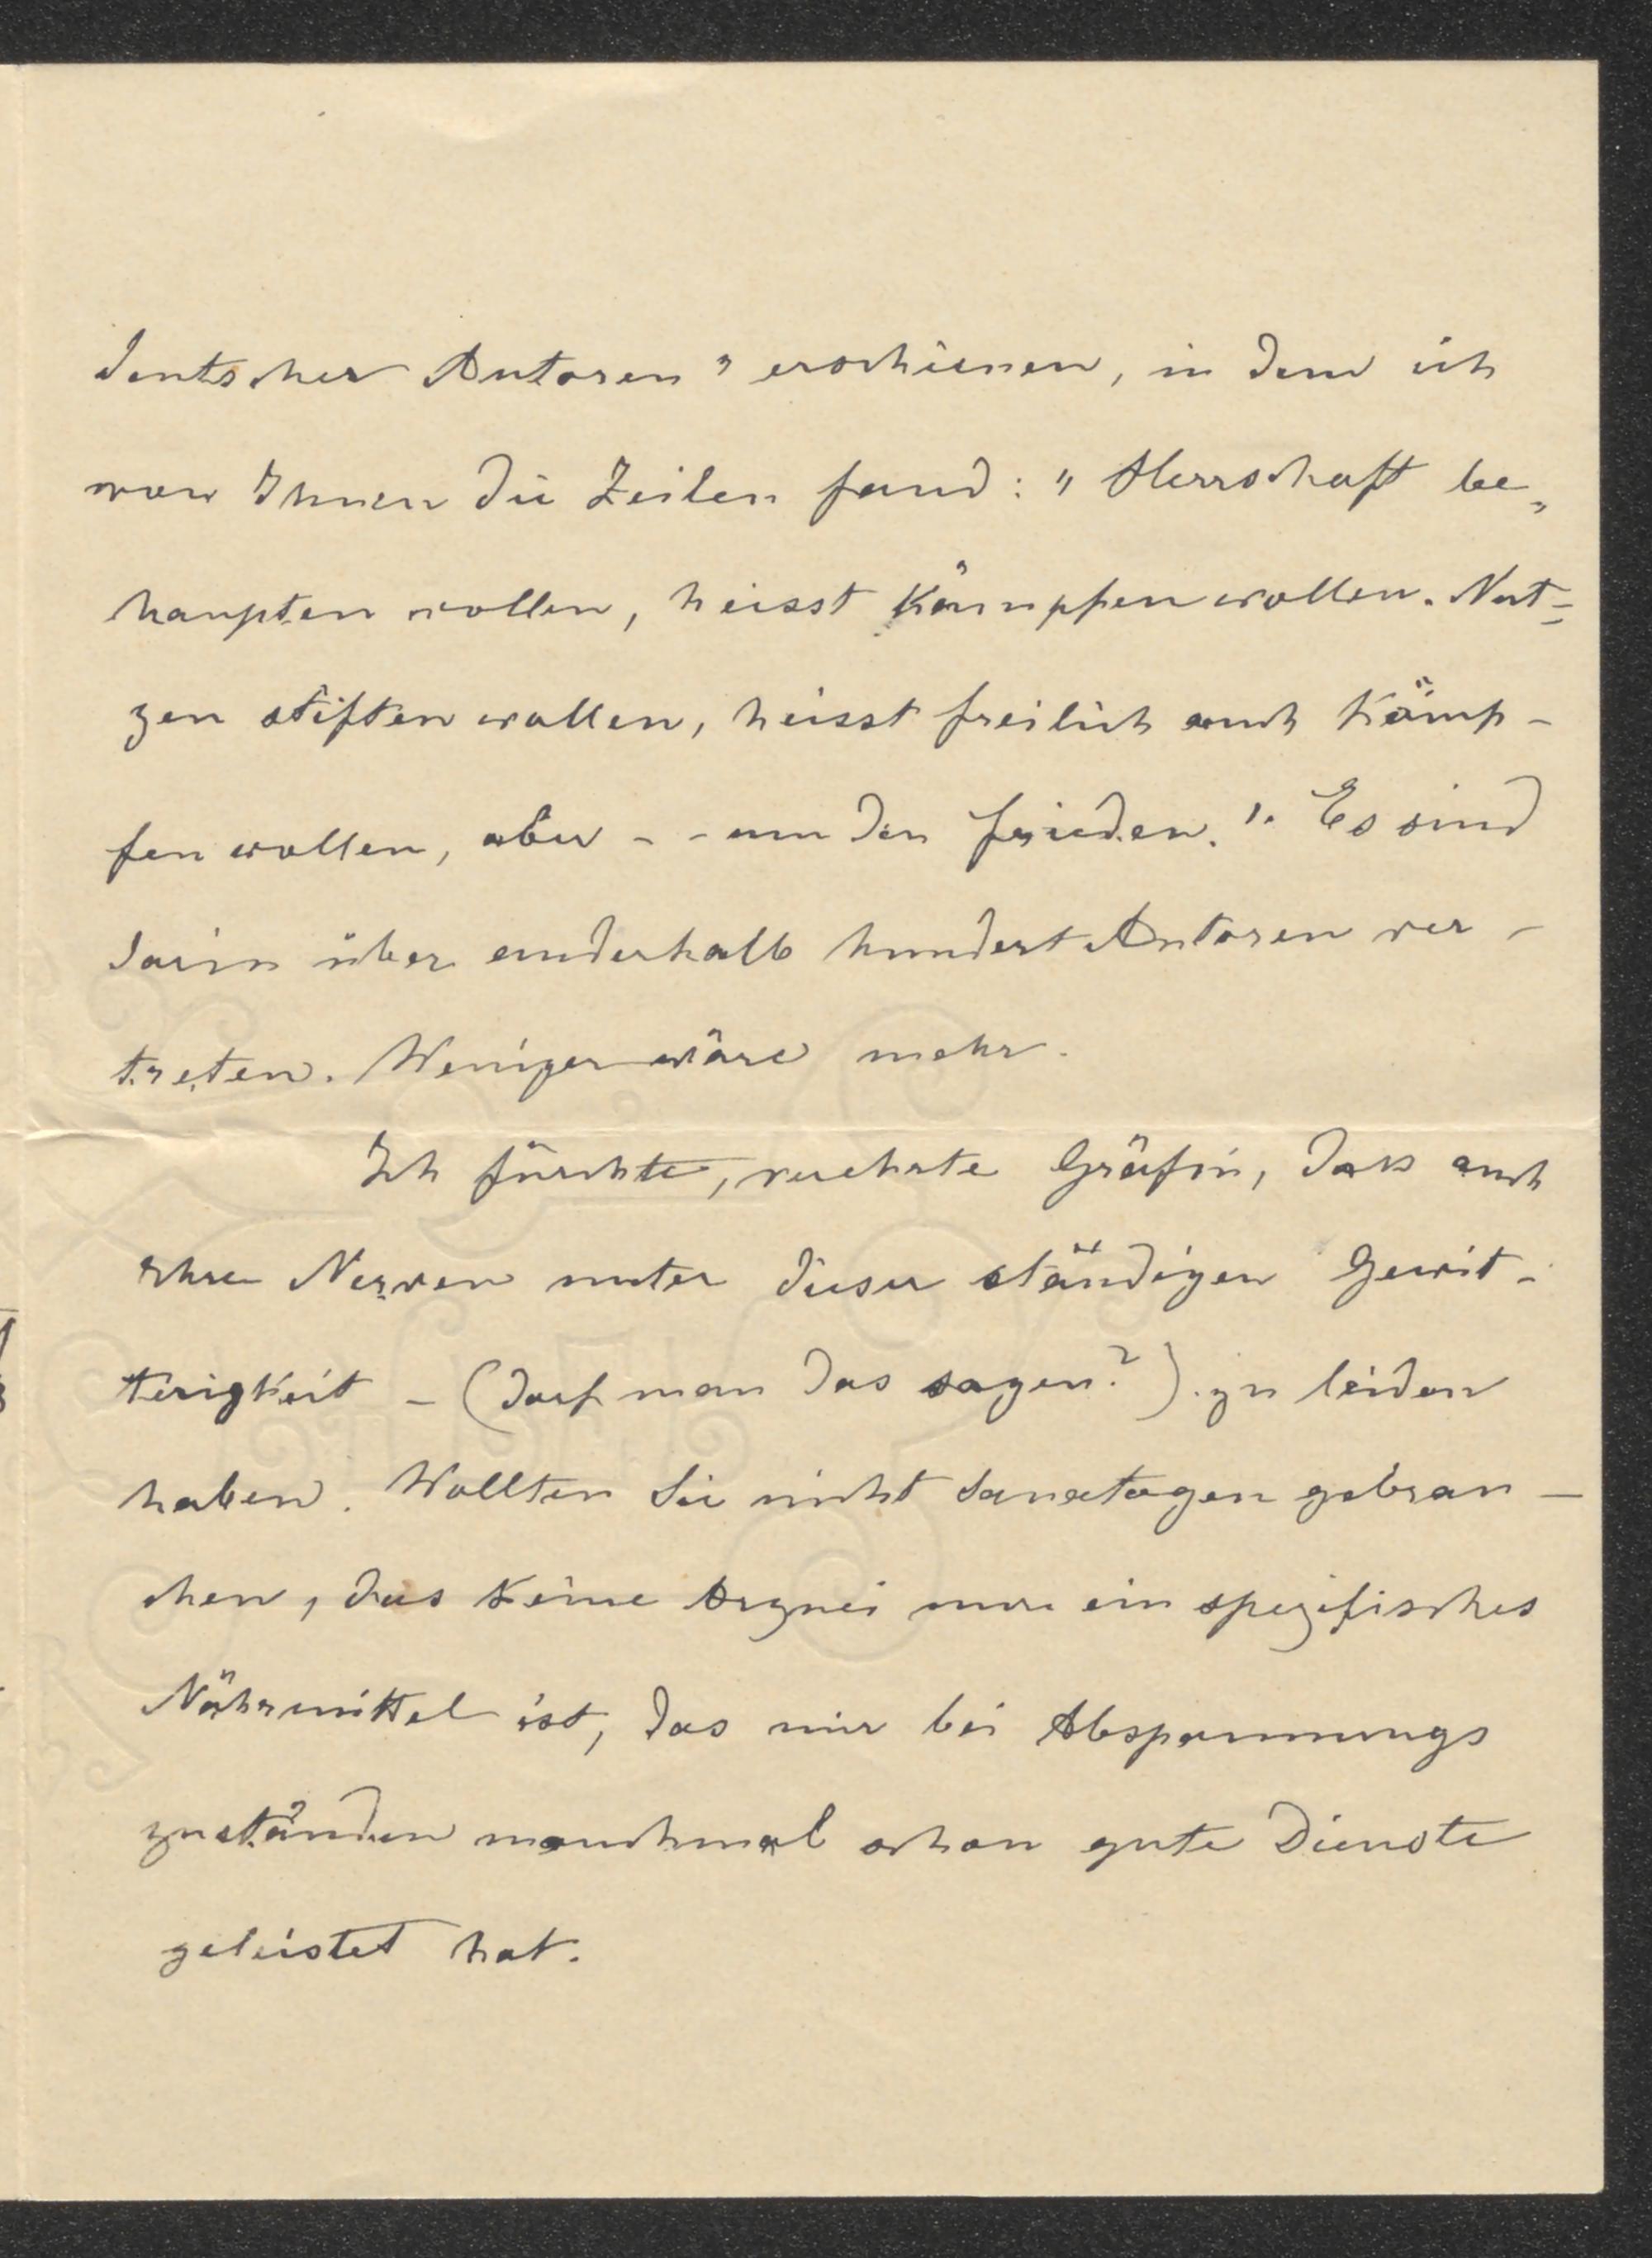 deutscher Autoren" erschienen, in dem ich
von Ihnen die Zeilen fand: "Herrschaft be„
haupten wollen, heisst kämpfen wollen. Nut=
zen stiften wollen, heisst freilich auch kämp-
fen wollen, aber - - um den Frieden.". Es sind
darin über anderhalb hundert Autoren ver-
treten. Weniger wäre mehr.
Ich fürchte, verehrte Gräfin, dass auch
Ihre Nerven unter dieser ständigen Gewit-
terigkeit - (darf man das sagen?) zu leiden
haben. Wollten Sie nicht Sanatogen gebrau-
chen, das keine Arznei nur ein spezifisches
Nährmittel ist, das mir bei Abspannungs
zuständen manchmal schon gute Dienste
geleistet hat.